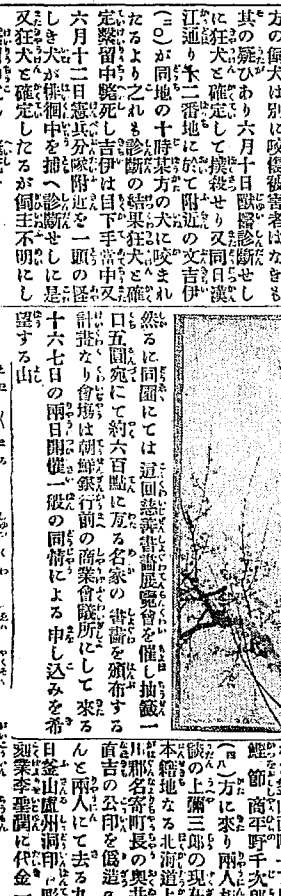 方の飼犬は別に咬傷被害者はなきも
其の疑ひあり六月十日獸醫診斷せし
に狂犬と確定して撲殺せり又同日漢
江通り 二番地に於て附近の文吉伊
(二〇)が同地の十時某方の犬に咬まれ
たるより之れも診斷の結果狂犬と確
定繫留中斃死し吉伊は目下手當中又
六月十二日憲兵分隊附近を一頭の怪
しき犬が徘徊中を捕へ診斷せしに是
又狂犬と確定したるが飼主不明にし
然るに同園にては這回慈善書畵展覽會を催し抽籤一
口五圓宛にて約六百點に亙る名家の書畵を頒布する
計畵なり會場は朝鮮銀行前の商業會議所にして來る
十六七日の兩日開催一般の同情による申し込みを希
望する由
鰹節商平野千次郎
(四八)方に來り兩人
談の上彌三郎の現在
本籍地なる北海道上
川郡名寄町長の奧
直吉の公印を僞造
んと兩人にて去る九
日釜山盧州洞印
刻業李聖潤に代金一